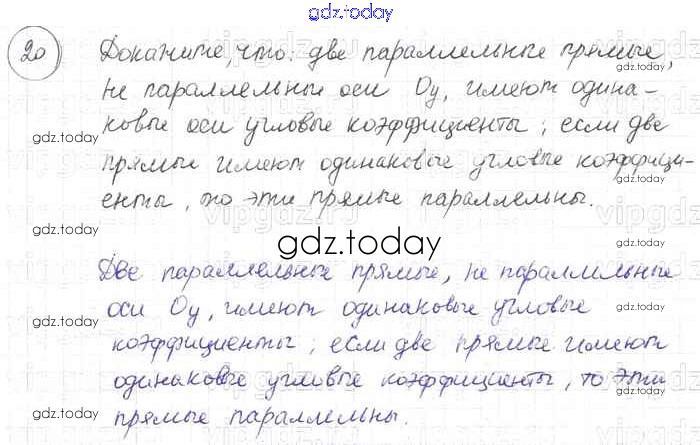 gdz.today
20 Докажите, что: две параллельные прямые,
не параллельные оси Оу, имеют одина-
ковые оси угловые коэффициенты; если две
прямые имеют одинаковые угловые коэффици-
енты, то эти прямые параллельны.
gdz.today
Две параллельные прямые, не параллильные
оси Оу, имеют одинаковые угловые
коэффициенты; если две прямые имеют
одинаковые угловые коэффициенты, то эти
прямые параллельны.